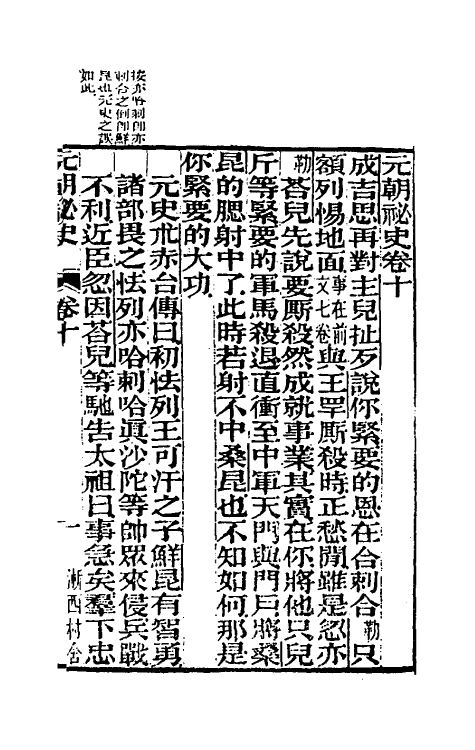 按亦哈剌卽亦
剌合之倒卽鮮
昆也元史之誤
如此
元朝祕史卷十
成吉思再對主兒扯歹說你緊要的恩在合剌合勒只
額列惕地面事在前文七卷與王罕厮殺時正愁閒雖是忽亦
勒荅兒先說要厮殺然成就事業其實在你將他只兒
斤等緊要的軍馬殺退直衝至中軍天門與門戶將桑
昆的腮射中了此時若射不中桑昆也不知如何那是
你緊要的大功
元史朮赤台傳曰初怯列王可汗之子鮮昆有智勇
諸部畏之怯列亦哈剌哈眞沙陀等帥眾來侵兵戰
不利近臣忽因荅兒等馳告太祖曰事急矣羣下忠
元朝祕史 卷十 一 漸西村舍